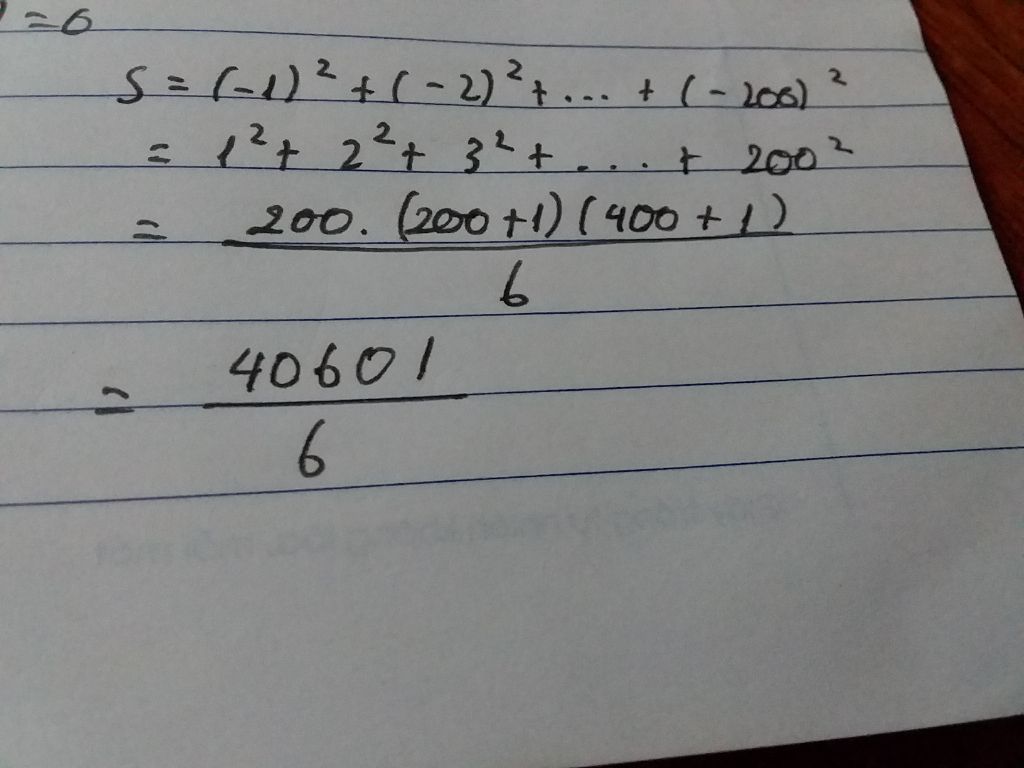 =6
S = (-1)² + (-2)² + ... + (-200)²
= 1² + 2² + 3² + .... + 200²
= 200. (200+1) (400 + 1) / 6
= 40601 / 6